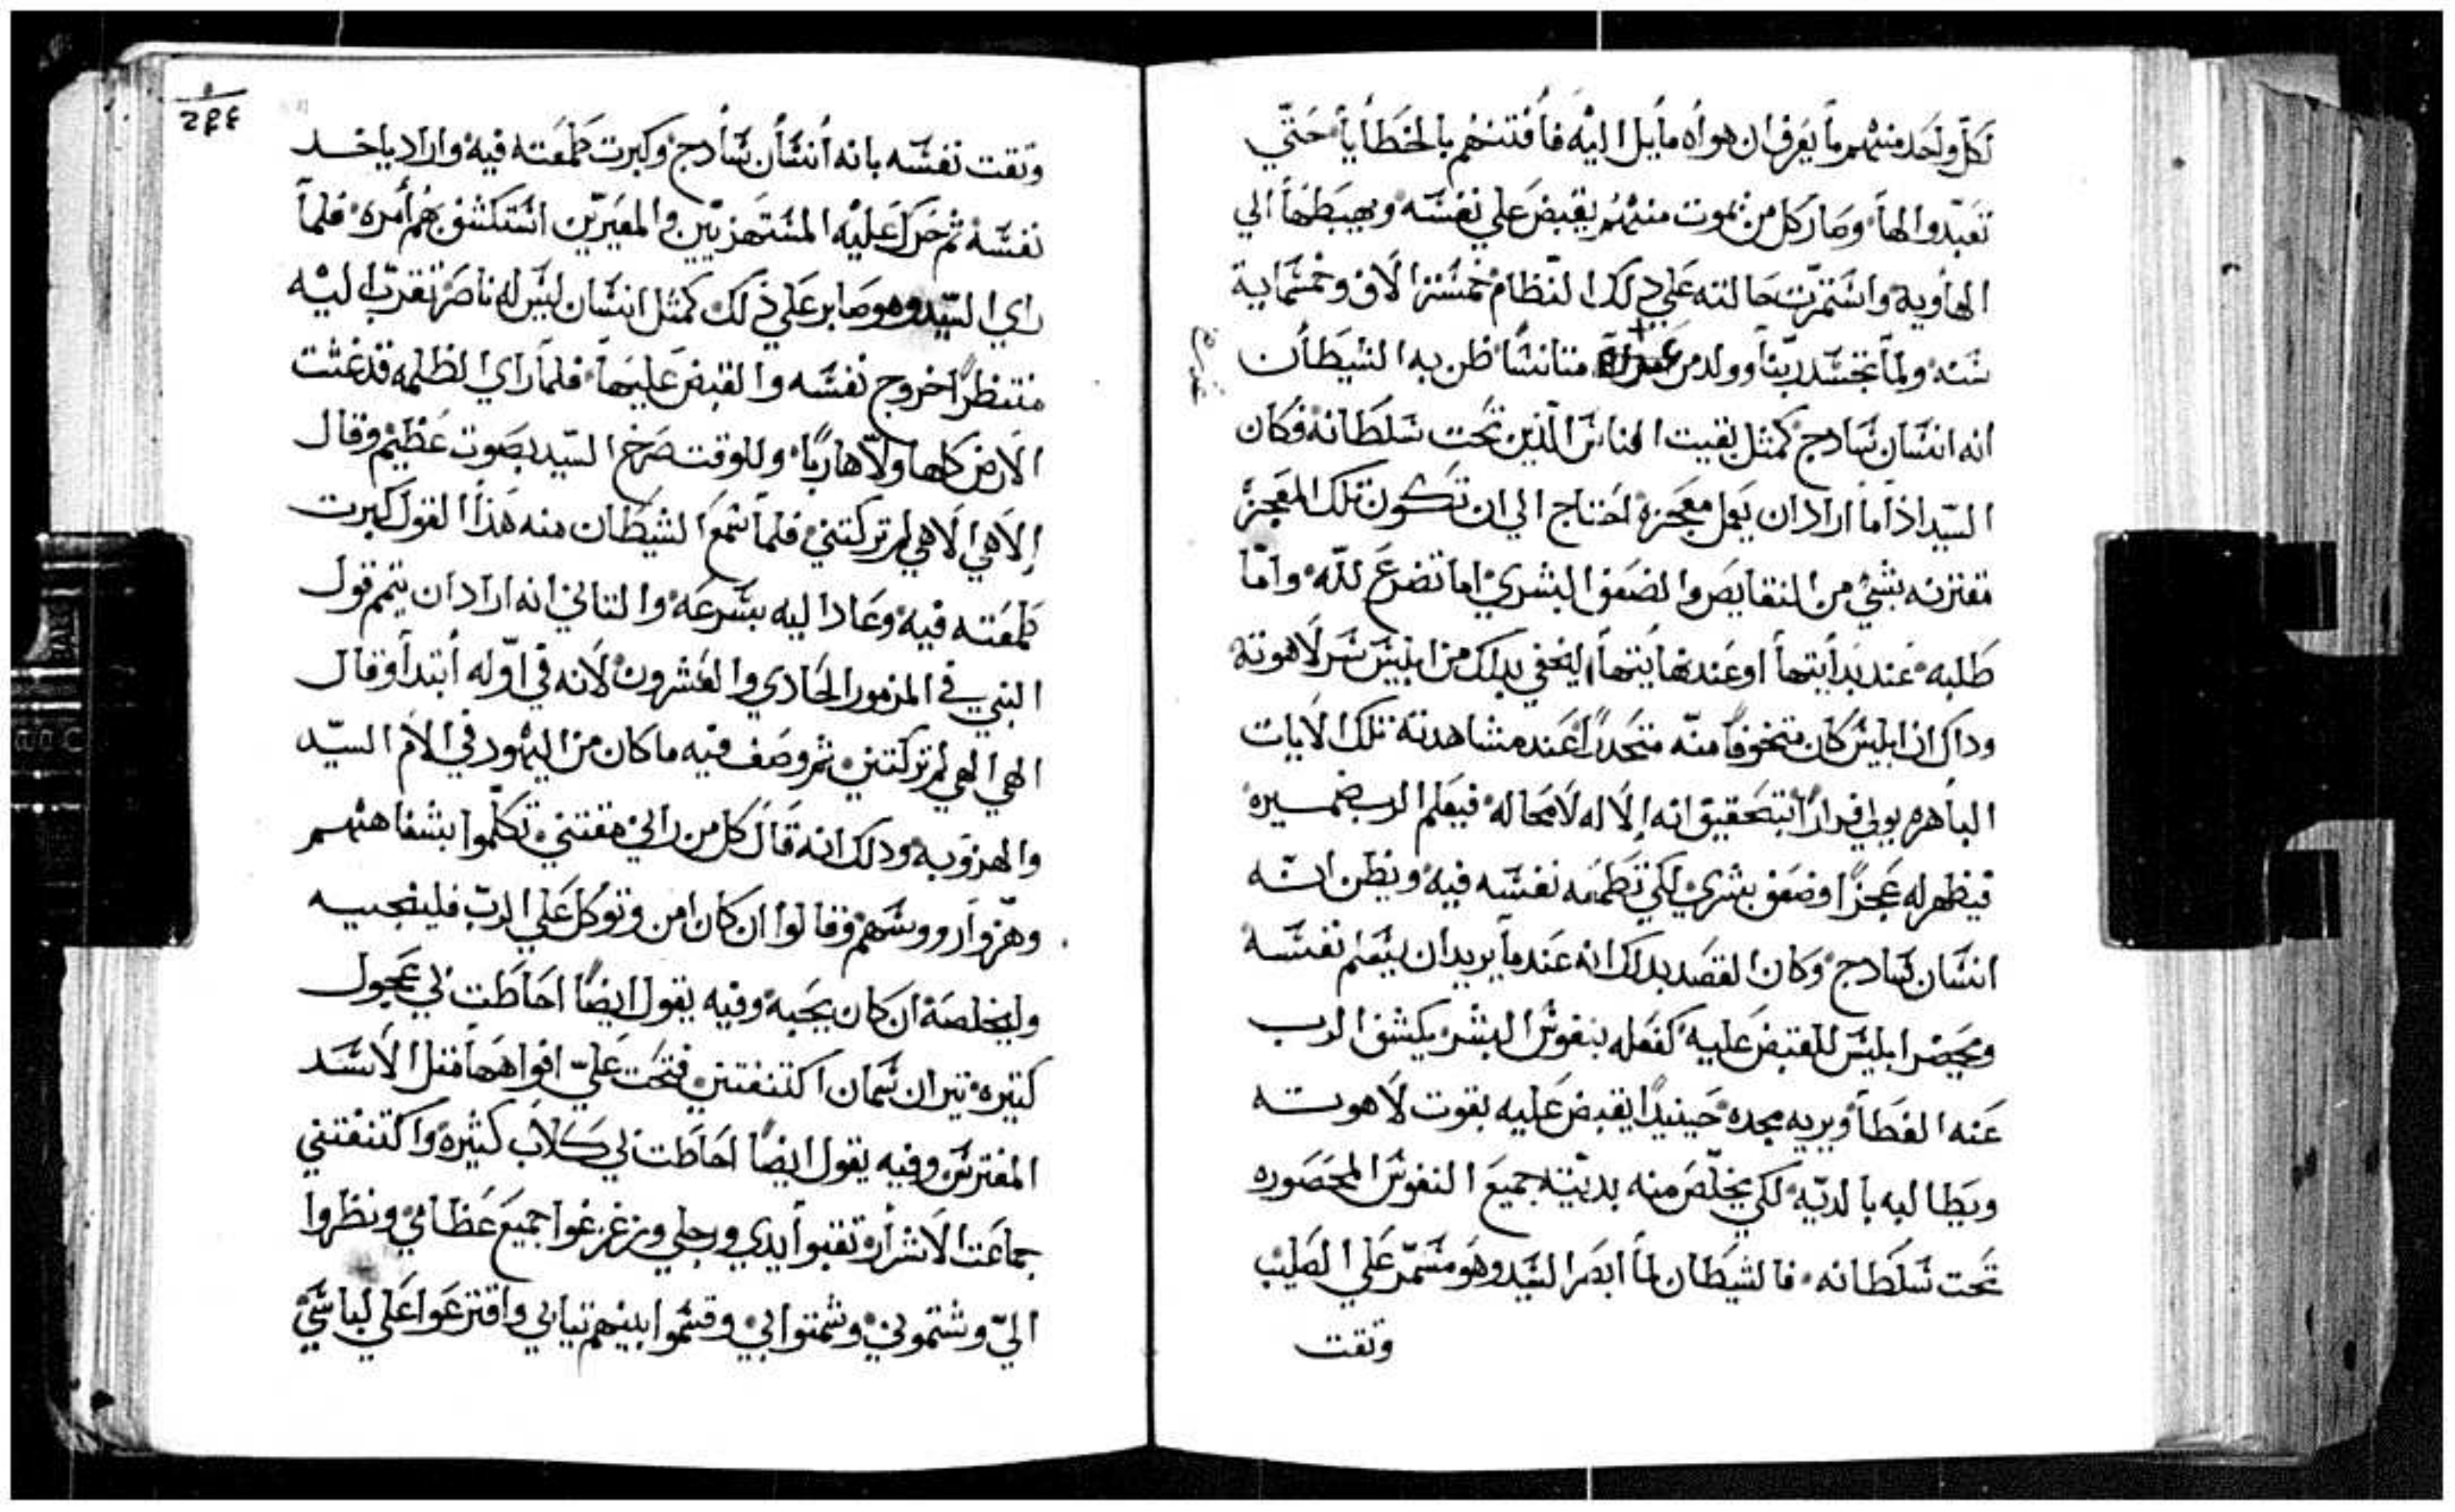 لكل واحد منهم ما يعرف ان هواه مايل اليه فافتنهم بالخطايا حتي
تعبدوا لها وصار كل من يموت منهم يقبض علي نفسه ويهبطها الي
الهاويه واستمرّت حالته علي دلك النظام خمسة الاف وخمسماية
سنه ولما تجسّد ربّنا وولد من متانسًا ظن به الشيطان
انه انسان سادج كمثل بقيت الناس الّذين تحت سلطانه فكان
السيّد اذا ما اراد ان يعمل معجزه احتاج الي ان تكون تلك المعجزه
مقترنه بشي من النقايص والضعف البشري اما تضرع للّه وامّا
طلبه عند بدايتها او عند نهايتها ليخفي بدلك من ابليس سر لاهوته
وداك ان ابليس كان متخوفًا منّه متحدرًا عند مشاهدته تلك الايات
الباهره يولي فرارًا بتحقيق انه الاله لا محاله فيعلم الرب ضميره
فيظهر له عجزًا وضعف بشري لكي تطمعه نفسه فيه ويظن انّه
انسان سادج وكان القصد بدلك انه عندما يريد ان يسلم نفسه
ويحضر ابليس للقبض عليه كفعله بنفوس البشر يكشف الرب
عنه الغطا ويريه مجده حينيدًا يقبض عليه بقوت لاهوته
ويطالبه بالديّه لكي يخلّص منه بديّته جميع النفوس المحصوره
تحت سلطانه فالشيطان لما ابصر السيّد وهو مسمّر علي الصليب
وثقت
٢٤٤
وثقت نفسّه بانه أنسان سادج وكبرت طمعته فيه واراد ياخد
نفسه ثم حرك عليه المستهزيين والمعيرّين استكشف بهم أمره فلما
راي السيّد وهو صابر علي ذلك كمثل انسان ليس له ناصر تقرب اليه
منتظرًا خروج نفسه والقبض عليها فلما راي الظلمه قد غشت
الارض كلها ولّا هاربًا وللوقت صرخ السيد بصوت عظيم وقال
إلاهي الاهي لم تركتني فلما سمع الشيطان منه هذا القول كبرت
طمعته فيه وعاد اليه بسرعه والتاني انه اراد ان يتمم قول
النبي في المزمور الحادي والعشرون لانه في اوّله أبتدأ وقال
الهي الهي لم تركتني ثم وصف فيه ما كان من اليهود في الام السيّد
والهزو به ودلك انه قال كل من راني مقتني تكلّموا بشفاههم
وهزّوا رووسهم وقالوا ان كان امن وتوكل علي الربّ فلينجيه
وليخلصه ان كان يحبه وفيه يقول ايضًا احاطت بي عجول
كتيره تيران سمان اكتنفتني فتحت عليّ افواهها مثل الاسد
المفترس وفيه يقول ايضًا احاطت بي كلاب كثيره واكتنفتني
جماعت الاشرار تقبوا يدي ورجلي وزعزعوا جميع عظامي ونظروا
اليّ وشتموني وشمتوا بي وقسموا بينهم تيابي واقترعوا علي لباسي